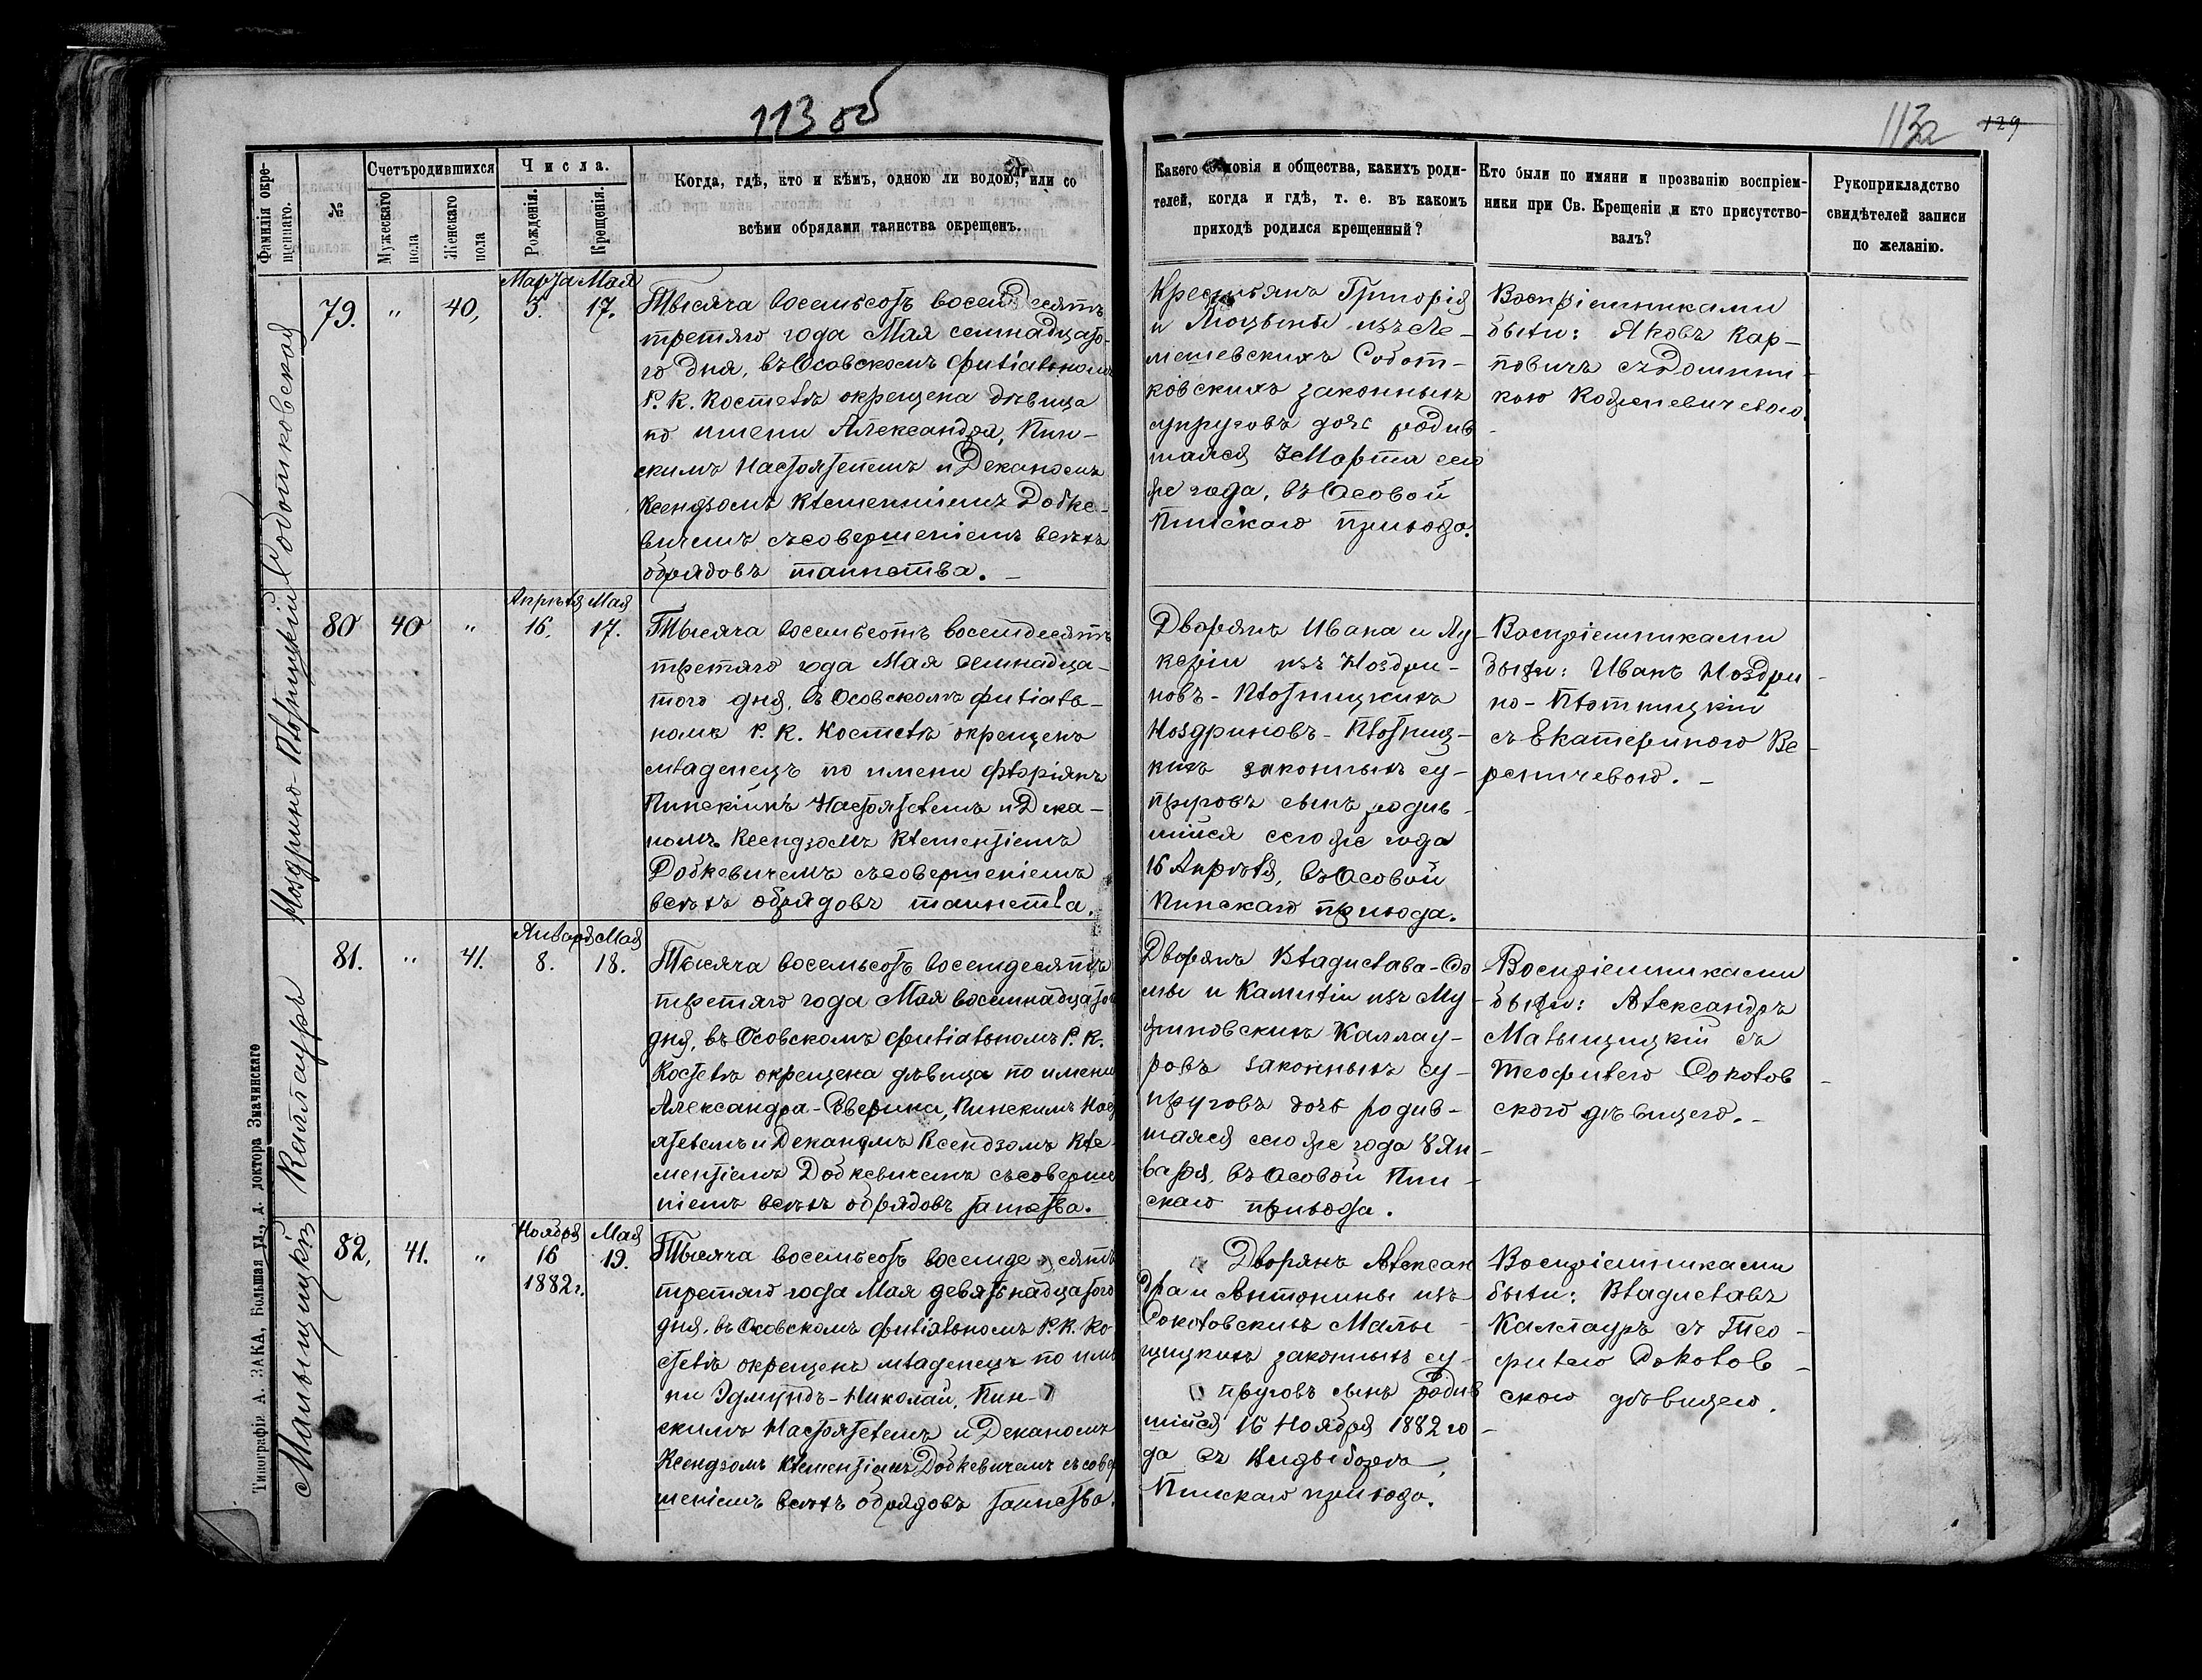 113 об
113а 129
Фамилія окре-
щеннаго.
№
Счетъ родившихся
Мужескаго
пола
Женскаго
пола
Числа.
Рожденія.
Крещенія.
Когда, гдѣ, кто и кѣмъ, одною ли водою, или со
всѣми обрядами таинства окрещенъ.
Какого сословія и общества, какихъ роди-
телей, когда и гдѣ, т. е. въ какомъ
приходѣ родился крещенный?
Кто были по имяни и прозванію воспріем-
ники при Св. Крещеніи и кто присутство-
валъ?
Рукоприкладство
свидѣтелей записи
по желанію.
Соботковская
79. " 40,
Марта Мая
3. 17.
Тысяча восемьсотъ восемдесятъ
третяго года Мая семнадцато-
го дня, въ Осовскомъ филіальномъ
Р. К. Костелѣ окрещена дѣвица
по имени Александра, Пин-
скимъ Настоятелемъ и Деканомъ
Ксендзомъ Клементіемъ Добке-
вичемъ съ совершеніемъ всѣхъ
обрядовъ таинства. –
Крестьянъ Григорія
и изъ Ле-
мешевскихъ Собот-
ковскихъ законныхъ
супруговъ дочь родив
шаяся 3 Марта сего
же года, въ Осовой
Пинскаго прихода.
Воспріемниками
были: Яковъ Кар-
повичъ съ Домини-
кою
Ноздрино-Плотницкій
80 40 "
Апрѣля Мая
16. 17.
Тысяча восемьсотъ восемдесятъ
третяго года Мая семнадца-
того дня, въ Осовскомъ филіаль-
номъ Р. К. Костелѣ окрещенъ
младенецъ по имени Флоріянъ
Пинскимъ Настоятелемъ и Дека-
номъ Ксендзомъ Клементіемъ
Добкевичемъ съ совершеніемъ
всѣхъ обрядовъ таинства.
Дворянъ Ивана и Лу-
керіи изъ Ноздри-
новъ-Плотницкихъ
Ноздриновъ-Плотниц-
кихъ законныхъ су-
пруговъ сынъ родив-
шійся сего же года
16 Апрѣля, въ Осовой
Пинскаго прихода.
Воспріемниками
были: Иванъ Ноздри-
но-Плотницкій
съ Екатериною Ве-
реничевою. –
Каллауръ
81. " 41.
Января Мая
8. 18.
Тысяча восемьсотъ восемдесятъ
третяго года Мая восемнадцатого
дня, въ Осовскомъ филіальномъ Р. К.
Костелѣ окрещена дѣвица по имени
Александра-Северина, Пинскимъ Наст
ятелемъ и Деканомъ Ксендзомъ Кле-
ментіемъ Добкевичемъ съ соверше
ніемъ всѣхъ обрядовъ таинства.
Дворянъ Владислава-Фо
мы и Камиліи изъ
Каллау-
ровъ законныхъ су-
пруговъ дочь родив-
шаяся сего же года 8 Ян-
варя, въ Осовой Пин-
скаго прихода.
Воспріемниками
были: Александръ
Малыщицкій съ
Теофилею Соколов-
скою дѣвицею. –
Малыщицкій
82, 41. "
Ноября Мая
16 19.
1882 г.
Тысяча восемьсотъ восемдесятъ
третяго года Мая девятнадцатого
дня, въ Осовскомъ филіяльномъ Р. К. Ко-
стелѣ окрещенъ младенецъ по име
ни Эдмундъ-Николай, Пин-
скимъ Настоятелемъ и Деканомъ
Ксендзомъ Клементіемъ Добкевичемъ съ совер
шеніемъ всѣхъ обрядовъ таинства.
Дворянъ Алексан
дра и Антонины изъ
Соколовскихъ Малы-
щицкихъ законныхъ су-
пруговъ сынъ родив
шійся 16 Ноября 1882 го-
да въ
Пинскаго прихода.
Воспріемниками
были: Владиславъ
Каллауръ съ Тео-
филею Соколов-
скою дѣвицею.
Типографія А. ЗАКА, Большая ул., д. доктора Значинскаго